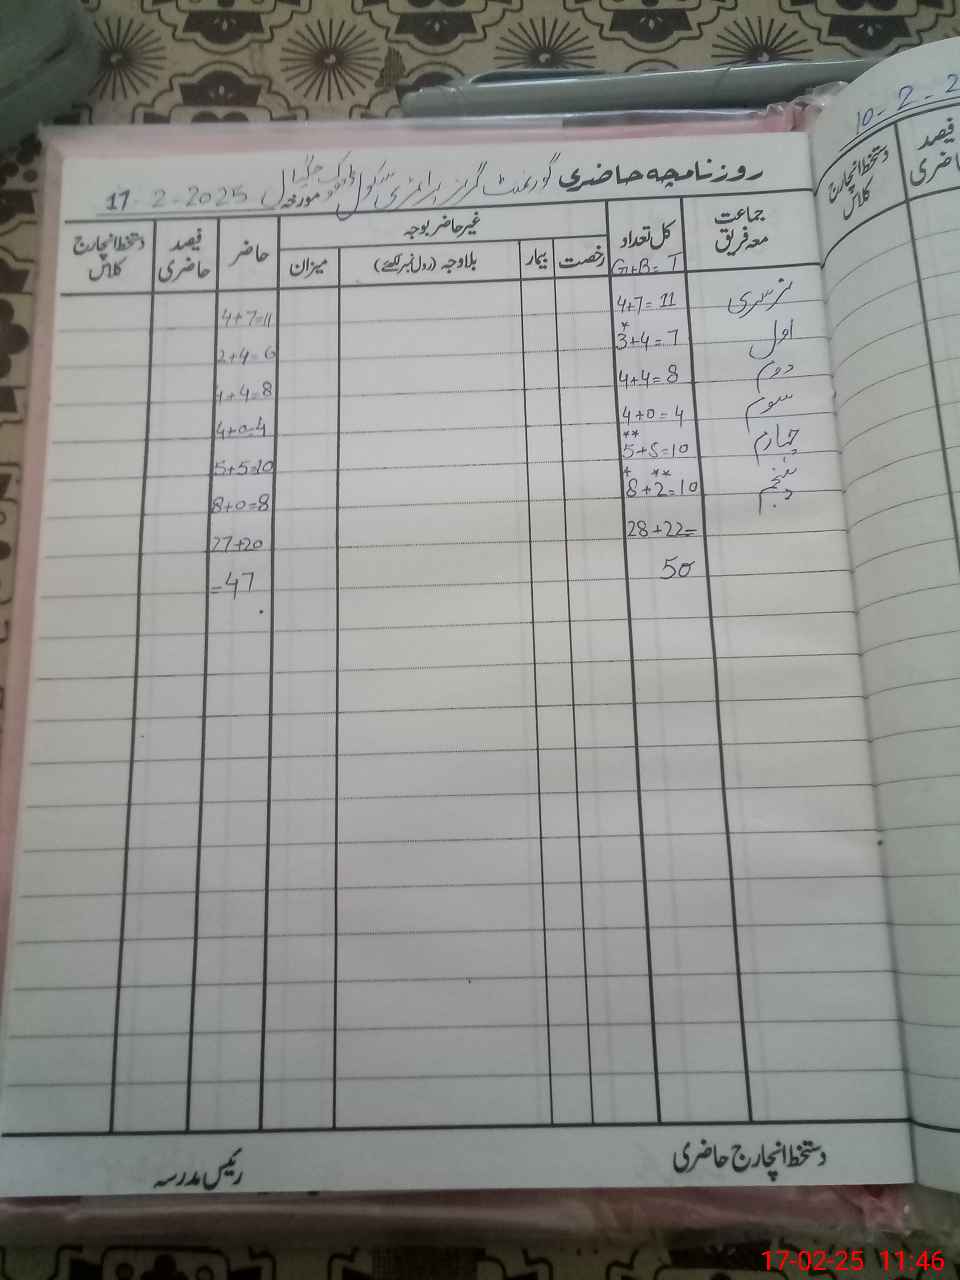 روزنامچہ حاضری گورنمنٹ گرلز پرائمری سکول مورخہ 17-2-2025
جماعت معہ فریق کل تعداد غیر حاضر بوجہ حاضر فیصد حاضری دستخط انچارج کلاس
G+B=T رخصت بیمار بلاوجہ (رول نمبر لکھئے) میزان
نرسری 4+7=11 4+7=11
اول 3*+4=7 2+4=6
دوم 4+4=8 4+4=8
سوم 4+0=4 4+0=4
چہارم 5**+5=10 5+5=10
پنجم 8*+2**=10 8+0=8
28+22= 27+20
50 =47
دستخط انچارج حاضری رئیس مدرسہ
10-2-2
دستخط انچارج کلاس
فیصد
حاضری
17-02-25 11:46